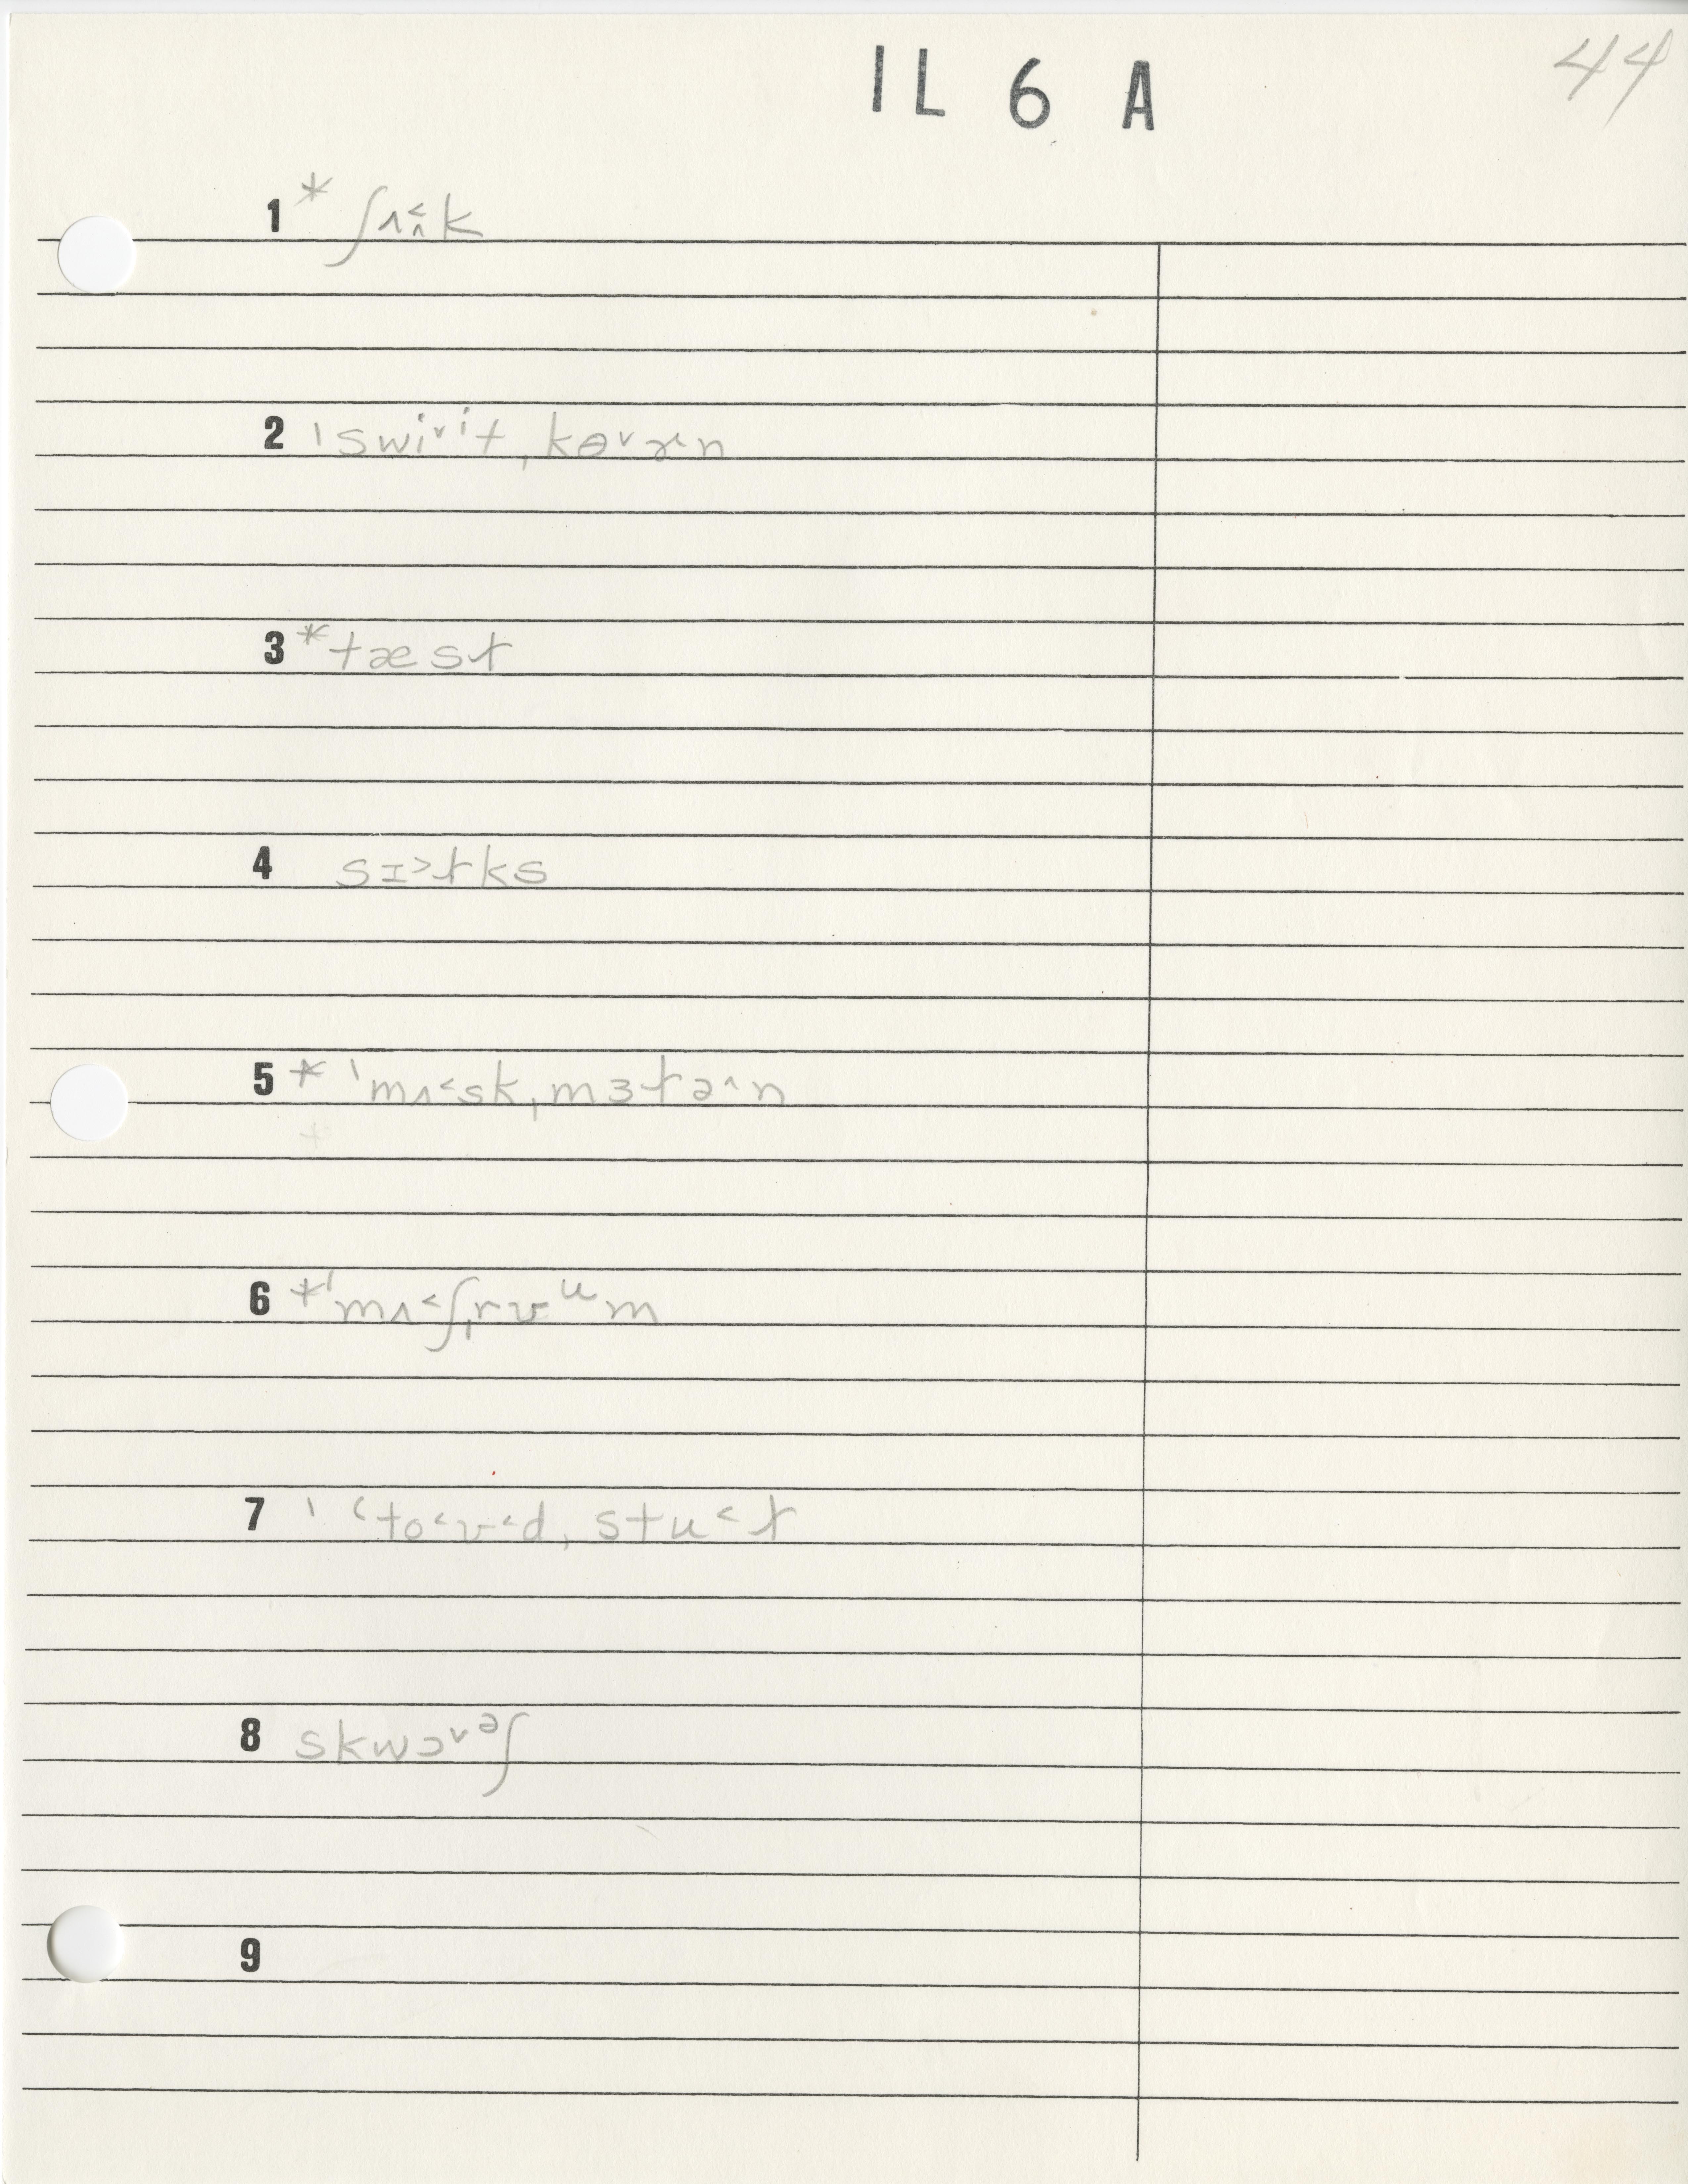 1L 6 A
44
1 * ʃʌ˂˰k
2 ˈswi˅it ˌkɵ˅ɚn
3 * tæst
4 sɪ˃ɫks
5 * ˈmʌ˂skˌmɜɫə˄n
6 * ˈmʌ˂ʃˌrʊᵘm
7 ˈ˂to˂ʊ˂dˌstu˂ɫ
8 skwɔ˅ᵊʃ
9